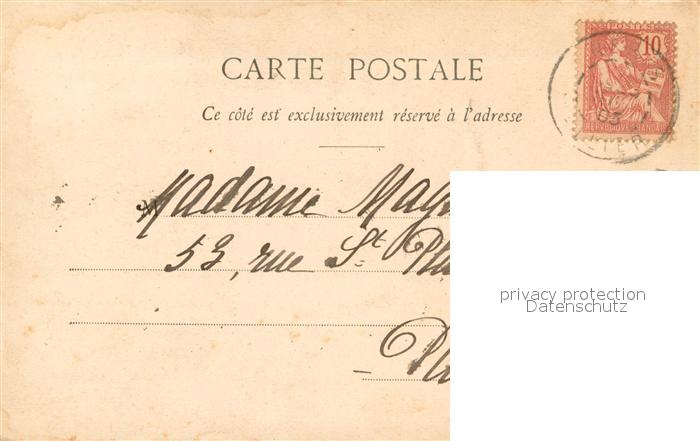 POSTES
10
CARTE POSTALE
Ce côté est exclusivement réservé à l'adresse
REPUBLIQUE FRANCAISE
Madame
53, rue St
privacy protection
Datenschutz